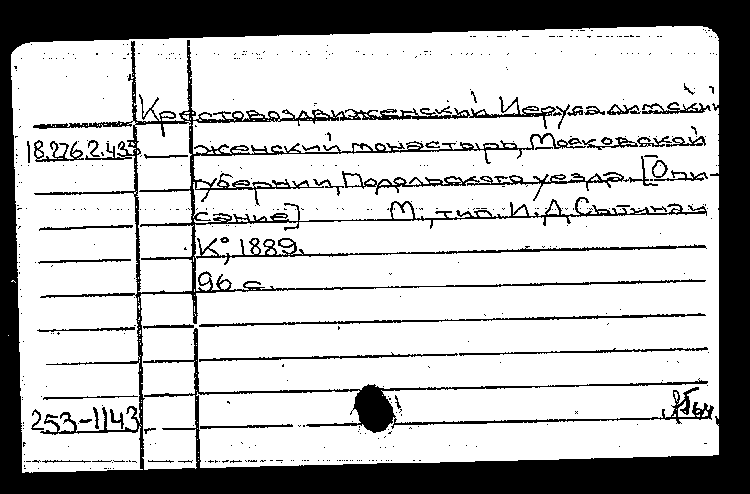 Крестовоздвиженский Иерусалимский
18.276.2.435 женский монастырь, Московской
губернии, Подольского уезда. [Опи-
сание] М., тип. И. Д. Сытина и
К°, 1889.
96 с.
253-1143